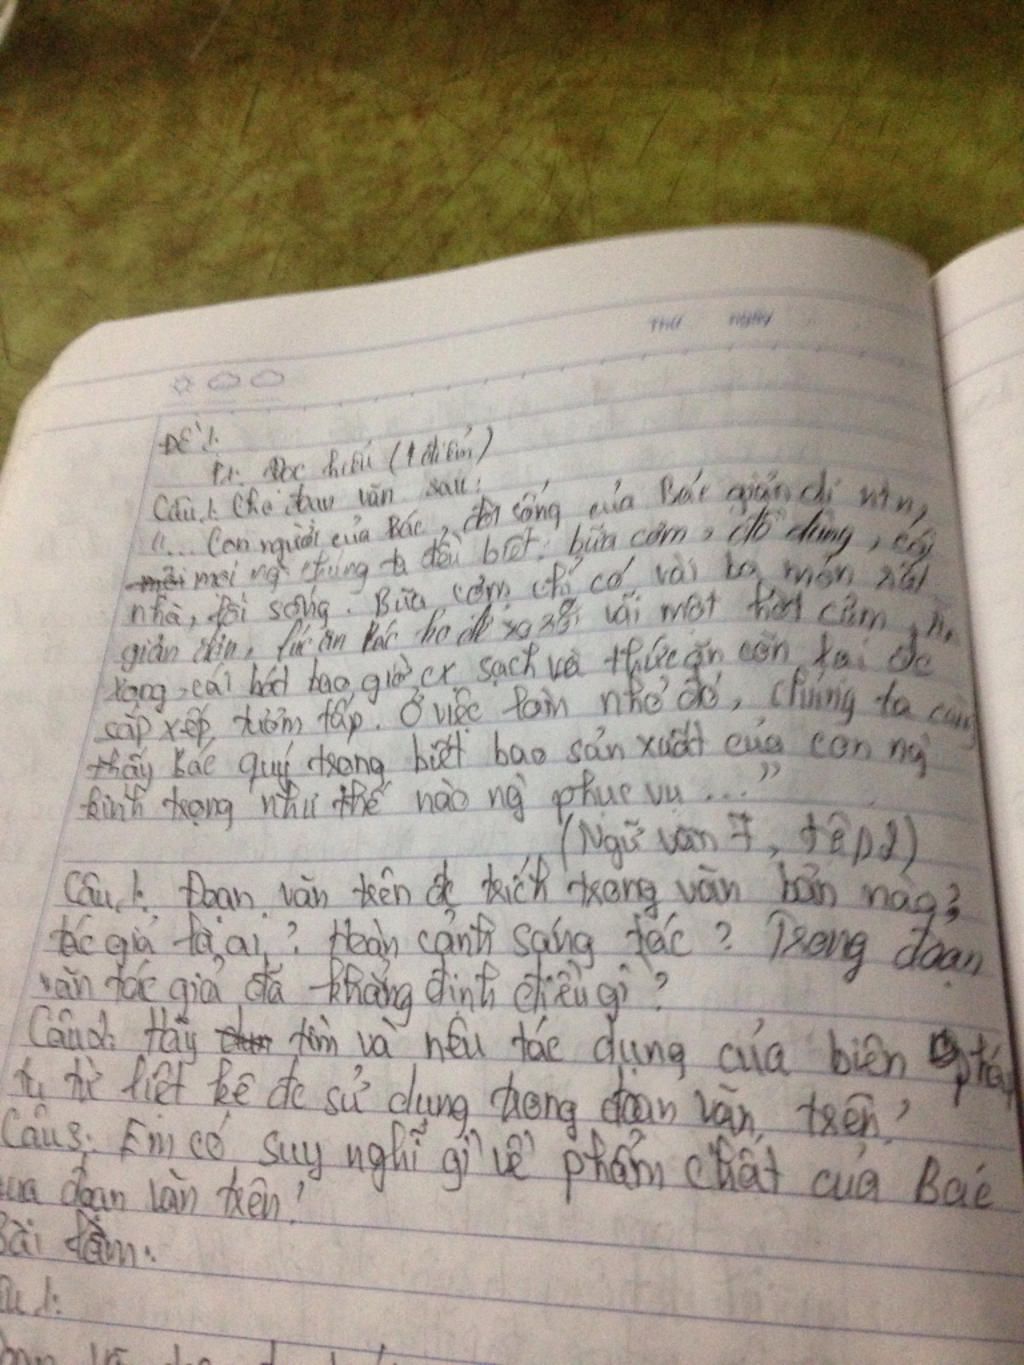 Thứ ngày
Đề 1:
P1: Đọc hiểu (4 điểm)
Câu 1: Cho đoạn văn sau:
"... Con người của Bác, đời sống của Bác giản dị ntn,
mọi ng chúng ta đều biết: bữa cơm, đồ dùng, cái
nhà, lối sống. Bữa cơm chỉ có vài ba món rất
giản đơn, lúc ăn Bác ko để rơi vãi một hột cơm, ăn
xong, cái bát bao giờ cx sạch và thức ăn còn lại đc
sắp xếp tươm tấp. Ở việc làm nhỏ đó, chúng ta càng
thấy Bác quý trọng biết bao sản xuất của con ng
kính trọng như thế nào ng phục vụ ..."
(Ngữ văn 7, tập 2)
Câu 1: Đoạn văn trên đc trích trong văn bản nào?
tác giả là ai? Hoàn cảnh sáng tác? Trong đoạn
văn tác giả đã khẳng định điều gì?
Câu 2: Hãy tìm và nêu tác dụng của biện pháp
tu từ liệt kê đc sử dụng trong đoạn văn trên?
Câu 3: Em có suy nghĩ gì về phẩm chất của Bác
qua đoạn văn trên?
Bài làm:
Câu 1: